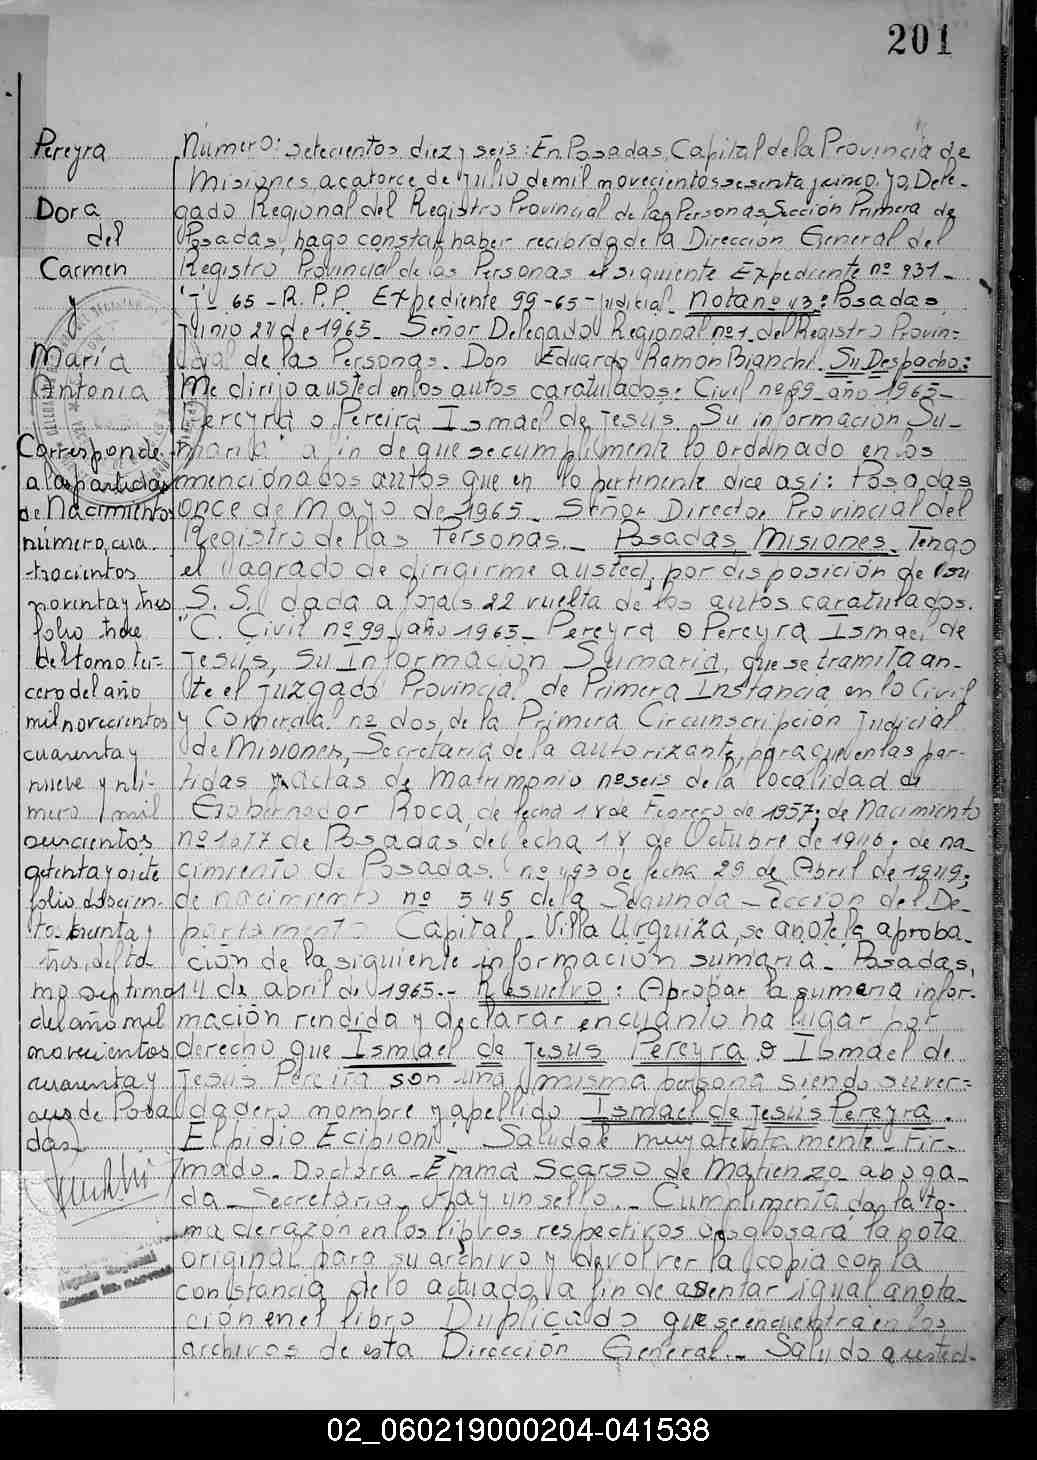 201
Pereyra
Dora
del
Carmen
y
María
Antonia
Corresponde
a las partidas
de Nacimiento
número, cua
trocientos
noventa y tres
folio trece
del tomo ter-
cero del año
mil novecientos
cuarenta y
nueve y nú-
mero mil
seiscientos
setenta y siete
folio doscien-
tos treinta y
tres, del to
mo septimo
del año mil
novecientos
cuarenta y
seis de Posa
das
Número: setecientos diez y seis: En Posadas, Capital de la Provincia de
Misiones, a catorce de Julio de mil novecientos sesenta y cinco. Yo, Dele-
gado Regional del Registro Provincial de las Personas, Sección Primera de
Posadas, hago constar, haber recibido de la Dirección General del
Registro Provincial de las Personas el siguiente Expediente nº 931-
"J" 65 - R.P.P. Expediente 99-65-Judicial. Nota nº 43: Posadas,
Junio 24 de 1965. Señor Delegado Regional nº 1. del Registro Provin-
cial de las Personas. Don Eduardo Ramon Bianchi. Su Despacho:
Me dirijo a usted en los autos caratulados: Civil nº 99 año 1965-
Pereyra o Pereira Ismael de Jesus. Su informacion Su-
maria" a fin de que se cumplimente lo ordenado en los
mencionados autos que en lo pertinente dice así: Posadas
once de Mayo de 1965. Señor Director Provincial del
Registro de las Personas. Posadas, Misiones. Tengo
el agrado de dirigirme a usted, por disposición de su
S. S. dada a fojas 22 vuelta de los autos caratulados.
"C. Civil nº 99, año 1965- Pereyra o Pereyra Ismael de
Jesús, Su Información Sumaria, que se tramita an-
te el Juzgado Provincial de Primera Instancia en lo Civil
y Comercial nº dos, de la Primera Circunscripción Judicial
de Misiones, Secretaria de la autorizante, para que en las par-
tidas y actas de Matrimonio nº seis de la localidad de
Gobernador Roca, de fecha 18 de Febrero de 1957; de Nacimiento
nº 1677 de Posadas, de fecha 18 de Octubre de 1946; de na-
cimiento de Posadas. nº 493 de fecha 29 de Abril de 1949;
de nacimiento nº 545 de la Segunda Seccion del De-
partamento Capital - Villa Urquiza, se anote la aproba-
ción de la siguiente información sumaria. Posadas,
14 de abril de 1965.- Resuelvo: Aprobar la sumaria infor-
mación rendida y declarar en cuanto ha lugar por
derecho que Ismael de Jesus Pereyra o Ismael de
Jesús Pereira son una misma persona siendo su ver-
dadero nombre y apellido Ismael de Jesús Pereyra.
Elpidio Ecipioni. Saludole muy atentamente. Fir-
mado. Doctora - Emma Scarso de Matienzo aboga-
da - Secretaria. Hay un sello.- Cumplimentada la to-
ma de razon en los libros respectivos desglosará la nota
original para su archivo y devolver la copia con la
constancia de lo actuado, a fin de asentar igual anota-
ción en el libro Duplicado que se encuentra en los
archivos de esta Dirección General.- Saludo a usted-
02_060219000204-041538